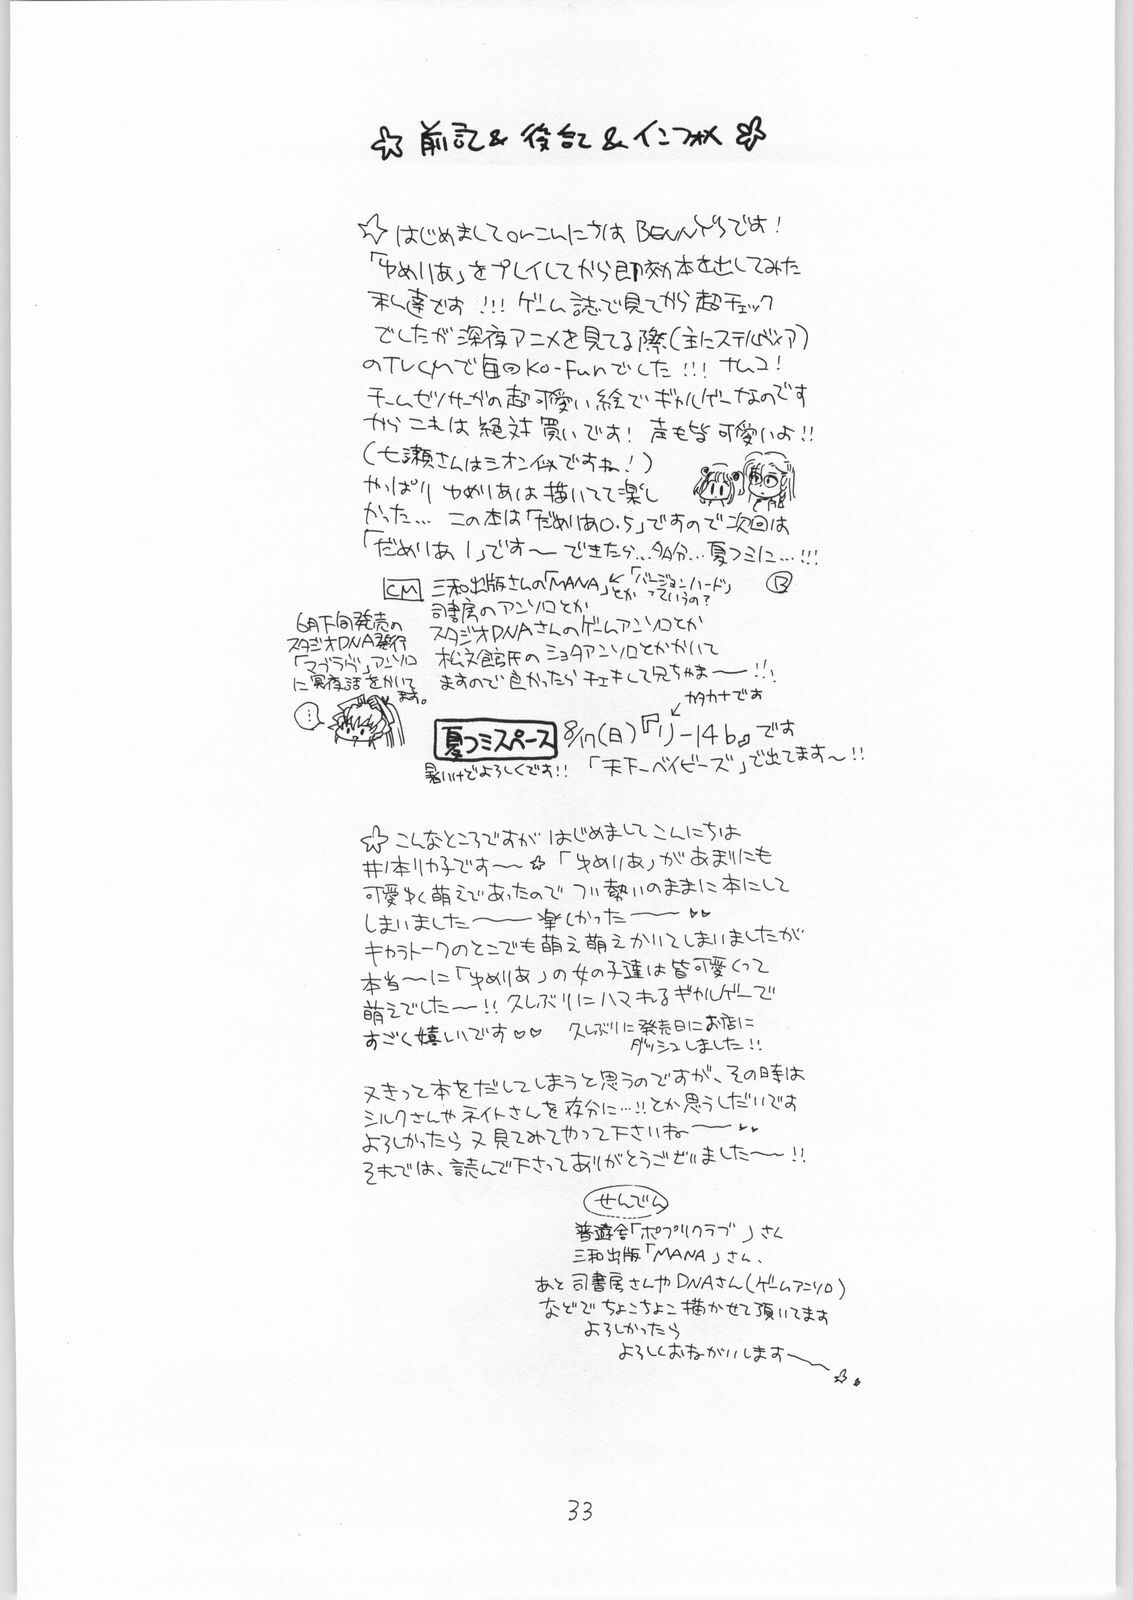 ☆ 前記&後記&インフォメ ☆
☆はじめましてorこんにちは BENNY'Sです!
「ゆめりあ」をプレイしてから即効本を出してみた
私達です!!! ゲーム誌で見てから超チェック
でしたが深夜アニメを見てる際(主にステルヴィア)
のTVCMで毎回Ko-Funでした!!! ナムコ!
チームゼノサーガの超可愛い絵でギャルゲーなのです
からこれは絶対買いです! 声も皆可愛いよ!!
(七瀬さんはシオン似ですね!)
やっぱりゆめりあは描いてて楽し
かった… この本は「だめりあ0.5」ですので次回は
「だめりあ1」です〜 できたら…多分…夏コミに…!!!
CM 三和出版さんの「MANA」←「バージョンハード」
とかっていうの?
Ⓑ
司書房のアンソロとか
スタジオDNAさんのゲームアンソロとか
松文館氏のショタアンソロとかかいて
ますので良かったらチェキして兄ちゃま〜!!!
6月下旬発売の
スタジオDNA発行
「マブラヴ」アンソロ
に冥夜話をかいて
ます。
…
カタカナです
夏コミスペース 8/17(日)『リ-14b』です
暑いけどよろしくです!! 「天下一ベイビーズ」で出てます〜!!
☆こんなところですがはじめましてこんにちは
井ノ本リカ子です〜☆「ゆめりあ」があまりにも
可愛ゆく萌えであったのでつい勢いのままに本にして
しまいました〜 楽しかった〜♡♡
キャラトークのとこでも萌え萌えかいてしまいましたが
本当〜に「ゆめりあ」の女の子達は皆可愛くって
萌えでした〜!! 久しぶりにハマれるギャルゲーで
すごく嬉しいです♡♡ 久しぶりに発売日にお店に
ダッシュしました!!
又きって本をだしてしまうと思うのですが、その時は
シルクさんやネイトさんを存分に…!!とか思うしだいです
よろしかったら又見てみてやって下さいね〜♡♡
それでは、読んで下さってありがとうございました〜!!
せんでん
普遊舎「ポプリクラブ」さん
三和出版「MANA」さん、
あと司書房さんやDNAさん(ゲームアンソロ)
などでちょこちょこ描かせて頂いてます
よろしかったら
よろしくおねがいします〜☆.
33